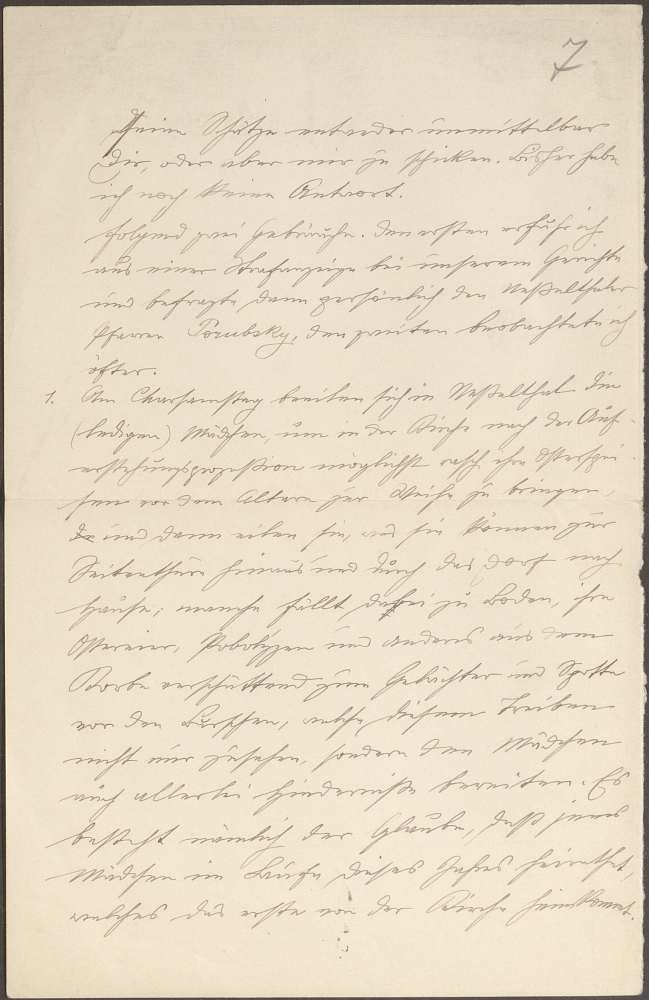 7
seine Schätze entweder unmittelbar
Dir, oder aber mir zu schicken. Bisher habe
ich noch keine Antwort.
Folgend zwei Gebräuche. Den ersten erfuhr ich
aus einer Strafanzeige bei unserem Gerichte
und befragte dann persönlich den Neßelthaler
Pfarrer Porubsky, den zweiten beobachtete ich
öfter.
1. Am Charsamstag beeilen sich in Neßelthal die
(ledigen) Mädchen, um in der Kirche nach der Auf-
erstehungsprozeßion möglichst rasch ihre Osterspei-
sen vor dem Altare zur Weihe zu bringen,
und dann eilen sie, was sie können zur
Seitenthüre hinaus und durch das Dorf nach
Hause; manche fällt dabei zu Boden, ihre
Ostereier, Pobolizen und anderes aus dem
Korbe verschüttend zum Gelächter und Spotte
vor den Burschen, welche diesem Treiben
nicht nur zusehen, sondern den Mädchen
auch allerlei Hinderniße bereiten. Es
besteht nämlich der Glaube, daß jenes
Mädchen im Laufe dieses Jahres heirathet,
welches das erste von der Kirche heimkommt.